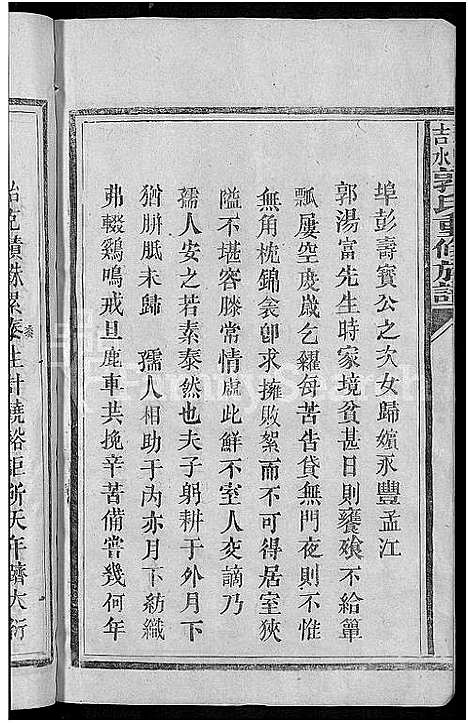 吉水郭氏重修族譜
埠彭壽寳公之次女歸嬪永豐孟江
郭湯富先生時家境貧甚日則饔飧不給簞
瓢屢空度歲乞糴每苦告貸無門夜則不惟
無角枕錦衾卽求擁敗絮而不可得居室狹
隘不堪容膝常情處此鮮不室人交謫乃
孺人安之若素泰然也夫子躬耕于外月下
猶胼胝未歸 孺人相助于内亦月下紡織
弗輟鷄鳴戒旦鹿車共挽辛苦備嘗幾何年
積銖累 生計饒裕 所天年躋大衍
FamilySearch